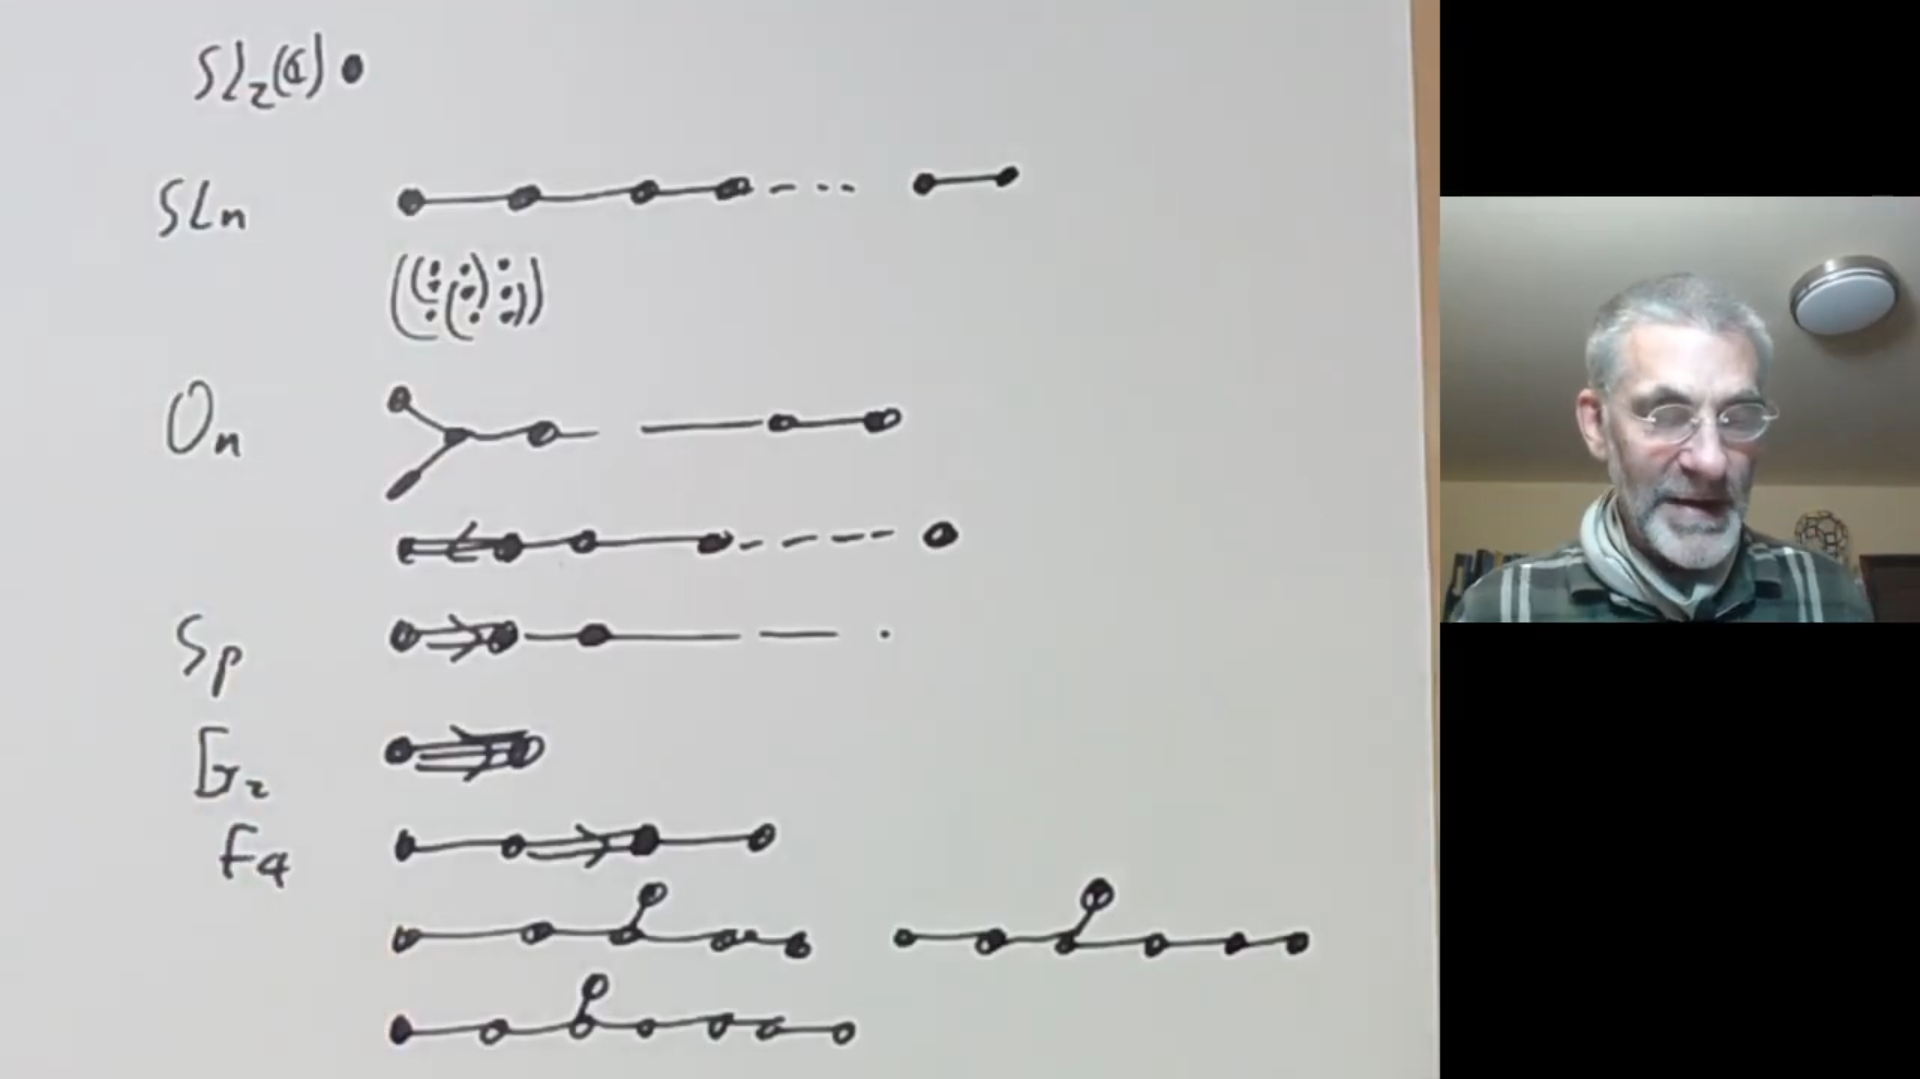 SL₂(ℂ)
SLn
On
Sp
G₂
F4